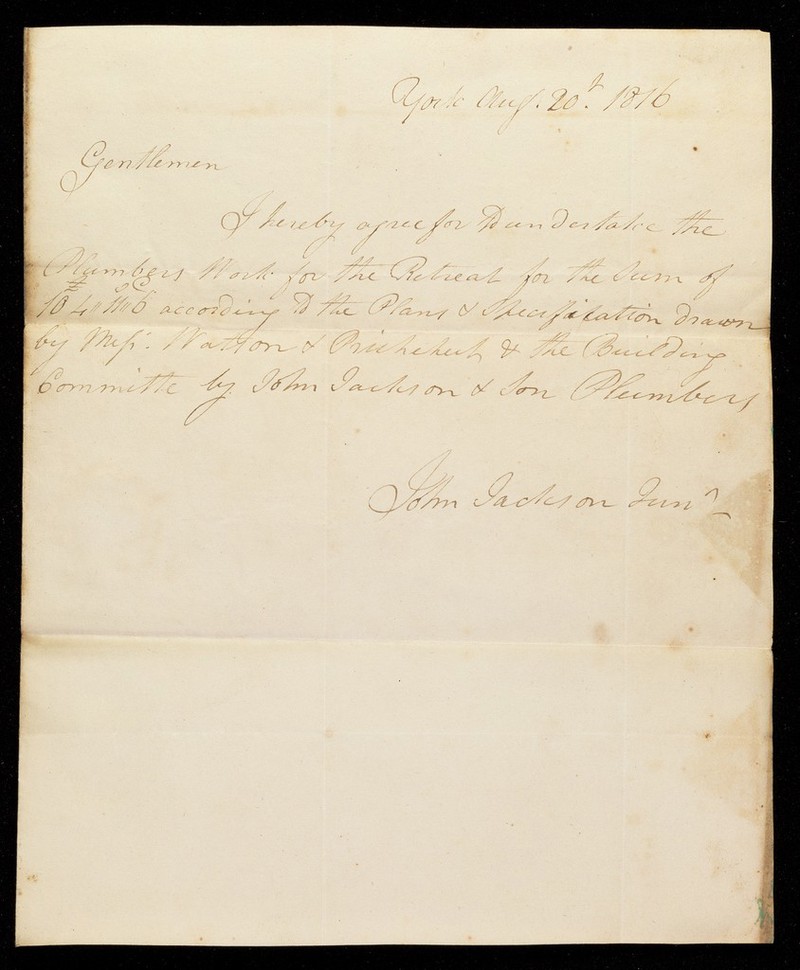 York Aug. 20t. 1816
Gentlemen
I hereby agree for To undertake the
Plumbers Work for the Retreat for the Sum of
according To the Plans & Specification drawn
by Messrs. Watson & Pritchett & the Building
Committe by John Jackson & Son Plumbers
John Jackson Junr